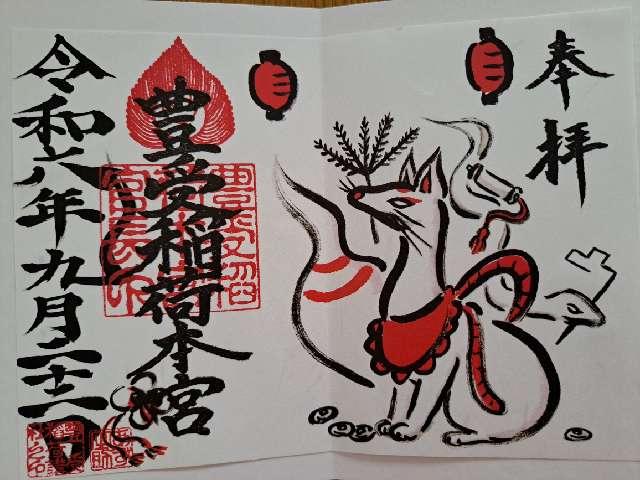 奉拝
豊受稲荷本宮
令和六年九月二十一日